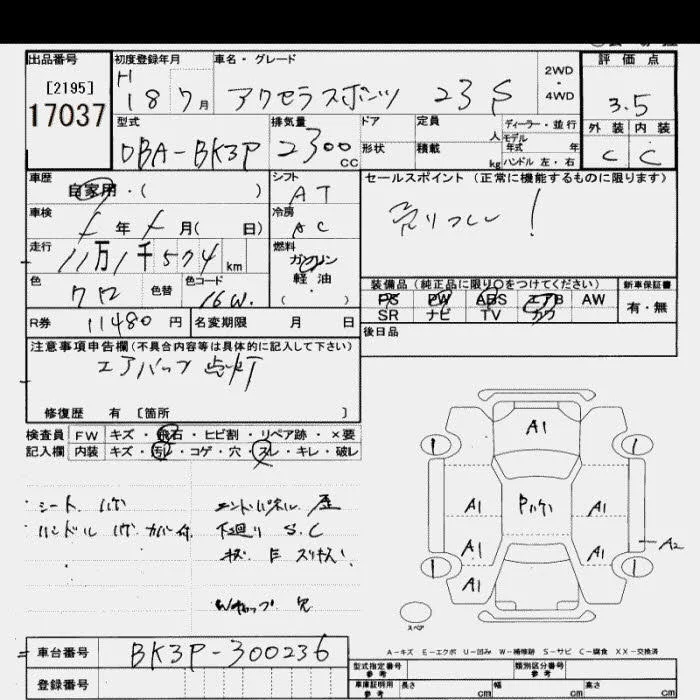 出品番号
[2195]
17037
初度登録年月
H 18 7月
車名・グレード
アクセラスポーツ 23S
2WD
・
4WD
評価点
3.5
外装 内装
C C
型式
DBA-BK3P
排気量
2300 cc
ドア
形状
定員 人
積載 kg
ディーラー・並行
モデル
年式 年
ハンドル 左・右
車歴
自家用・( )
シフト
AT
セールスポイント (正常に機能するものに限ります)
売りつくし!
車検
年 月( 日)
冷房
AC
走行
11万1千574km
燃料
ガソリン
軽・油
( ・ )
色
クロ
色替
色コード
16W.
装備品 (純正品に限り○をつけてください)
新車保証書
PS PW ABS エアB AW
SR ナビ TV カワ
有・無
R券 11480円
名変期限 月 日
後日品
注意事項申告欄(不具合内容等は具体的に記入して下さい)
エアバッグ 点灯
修復歴 有 [箇所 ]
検査員 FW キズ・飛石・ヒビ割・リペア跡・×要
記入欄 内装 キズ・汚れ・コゲ・穴・スレ・キレ・破レ
シート ハゲ
エンドパネル 歪
ハンドル ハゲ カバー付
下廻り S.C
Wキャップ 欠
A1
1 1
A1 Pハゲ A1
A1 A1 A2
1 1
A1
スペア
A-キズ E-エクボ U-凹み W-補修跡 S-サビ C-腐食 XX-交換済
車台番号 BK3P-300236
登録番号
型式指定番号
参考
類別区分番号
参考
車庫証明用
参考
長さ cm 幅 cm 高さ cm